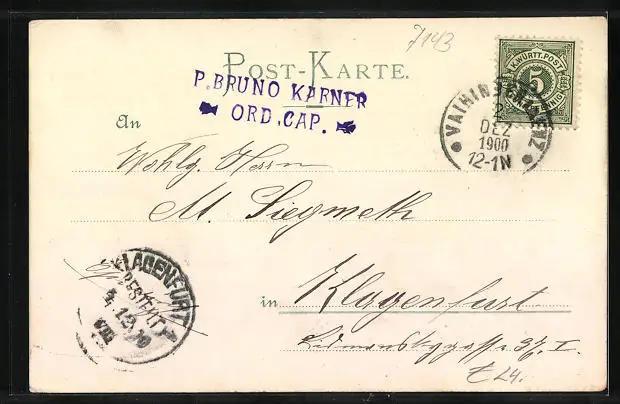 7143
POST-KARTE.
P. BRUNO KARNER
ORD. CAP.
K. WÜRTT. POST
5
VAIHINGEN
DEZ
1900
12-1N
An
Wohlg. Herrn
M. Siegmeth
in Klagenfurt
KLAGENFURT
BESTELLT
4.12.00
VIII